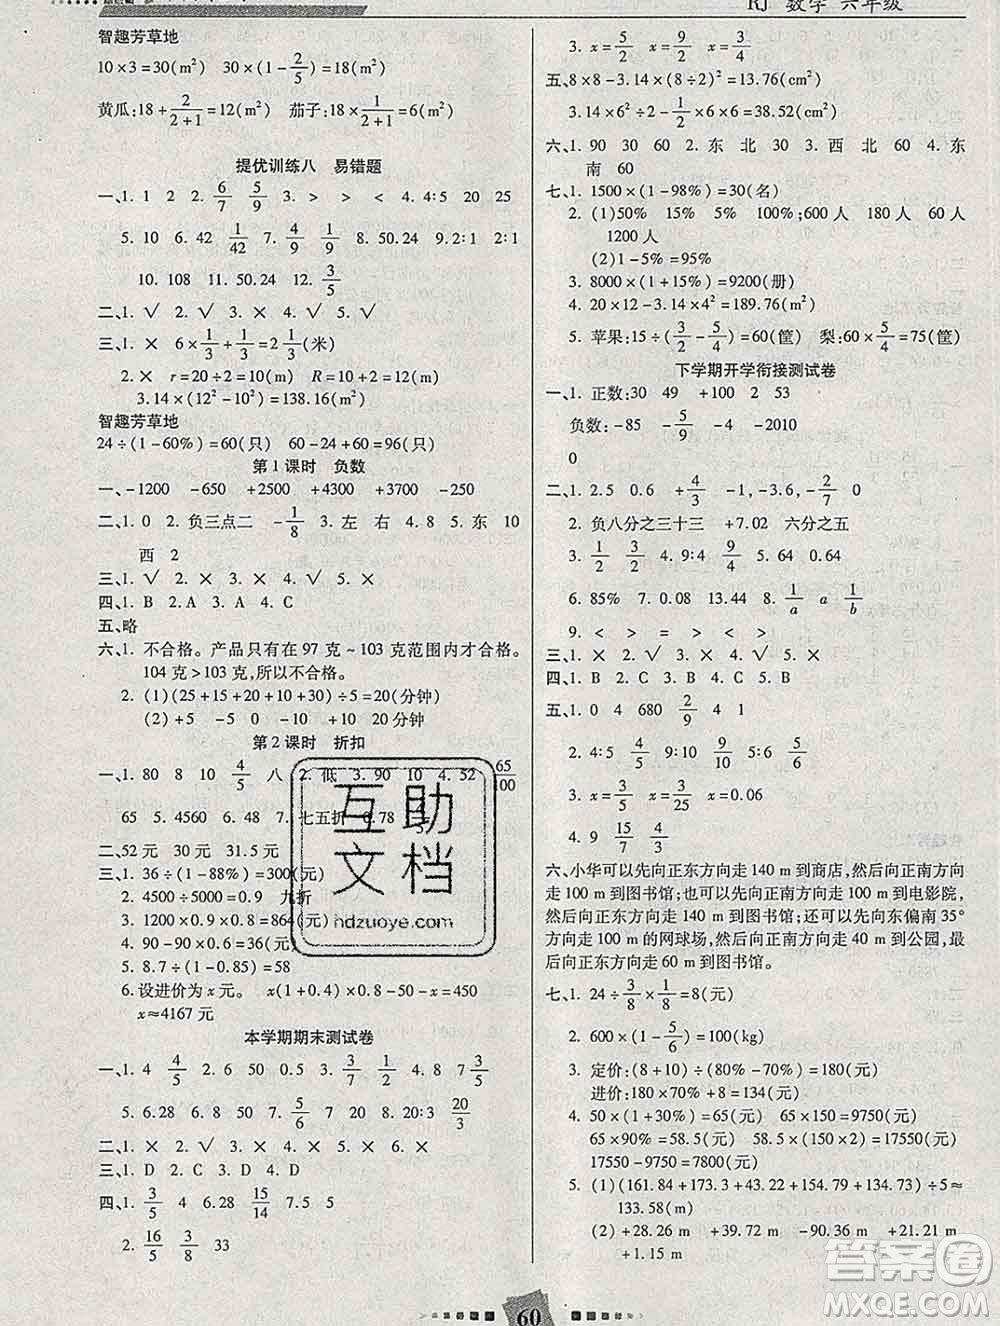 RJ 数学 六年级
智趣芳草地
10×3=30(m²) 30×(1-2/5)=18(m²)
黄瓜:18÷2/(2+1)=12(m²) 茄子:18×1/(2+1)=6(m²)
提优训练八 易错题
一、1. 1 2 2. 6/7 5/9 3. > > < 4. 4:5 20 25
5. 10 6. 42 1/42 7. 4/9 1/9 8. 50.24 9. 2:1 2:1
10. 108 11. 50.24 12. 3/5
二、1. √ 2. √ 3. × 4. √ 5. √
三、1. × 6×1/3+1/3=2 1/3(米)
2. × r=20÷2=10(m) R=10+2=12(m)
3.14×(12²-10²)=138.16(m²)
智趣芳草地
24÷(1-60%)=60(只) 60-24+60=96(只)
第1课时 负数
一、-1200 -650 +2500 +4300 +3700 -250
二、1. 0 2. 负三点二 -1/8 3. 左 右 4. 8 5. 东 10
西 2
三、1. √ 2. × 3. × 4. √ 5. ×
四、1. B 2. A 3. A 4. C
五、略
六、1. 不合格。产品只有在97克~103克范围内才合格。
104克>103克,所以不合格。
2. (1)(25+15+20+10+30)÷5=20(分钟)
(2)+5 -5 0 -10 +10 20分钟
第2课时 折扣
一、1. 80 8 10 4/5 八 2. 低 3. 90 10 4. 52 65/100
65 5. 4560 6. 48 7. 七五折 8. 78
二、52元 30元 31.5元
三、1. 36÷(1-88%)=300(元)
2. 4500÷5000=0.9 九折
3. 1200×0.9×0.8=864(元)
4. 90×0.9×0.9
5. 8.7÷(1+0.5)=58
6. 设进价为x元。 x(1+0.4)×0.48-x=450
x≈4167元
本学期期末测试卷
一、1. 4 4/5 2. 60 50 0.5 3. 3/7 1/2 4. 8 7 4/5
5. 6.28 6. 50 5/6 7. 7 20 8. 20:3 20/3
二、1. × 2. √ 3. × 4. × 5. ×
三、1. D 2. D 3. C 4. D 5. D
四、1. 3/5 4 6.28 15/14 7.5 5
2. 16/5 3/8 33
3. x=5/2 x=9/2 x=5/4
五、8×8-3.14×(8÷2)²=13.76(cm²)
3.14×6²÷2-1/2×6×6=38.52(cm²)
六、1. 90 30 60 2. 东 北 30 3. 西 北 60 4. 东
南 60
七、1. 1500×(1-98%)=30(名)
2. (1)50% 15% 5% 100%;600人 180人 60人
1200人
(2)1-5%=95%
3. 8000×(1+15%)=9200(册)
4. 20×12-3.14×4²=189.76(m²)
5. 苹果:15÷(3/2-5/4)=60(筐) 梨:60×5/4=75(筐)
下学期开学衔接测试卷
一、1. 正数:30 49 +100 2 53
负数:-85 -5/9 -4 -2010
0
二、1. 2.5 0.6 +4/3 -1,-3.6,-2/7 0
2. 负八分之三十三 +7.02 六分之五
3. 1/2 3/2 4. 9:4 9/4 5. 64 0.64
6. 85% 7. 0.08 13.44 8. 1/a 1/b
9. < > = <
三、1. × 2. √ 3. √ 4. √ 5. ×
四、1. B 2. B 3. A 4. C 5. C
五、1. 0 4 680 2/9 4 1
2. 4:5 4/5 9:10 9/10 5:6 5/6
3. x=3/5 x=3/25 x=0.06
4. 9 15/7 4/3
六、小华可以先向正东方向走140m到商店,然后向正南方向
走100m到图书馆;也可以先向正南方向走100m到电影院,
然后向正东方向走140m到图书馆;还可以先向东偏南35°
方向走100m的网球场,然后向正南方向走40m到公园,最
后向正东方向走60m到图书馆。
七、1. 24÷3/8×1/8=8(元)
2. 600×(1-5/6)=100(kg)
3. 定价:(8+10)÷(80%-70%)=180(元)
进价:180×70%+8=134(元)
4. 50×(1+30%)=65(元) 65×150=9750(元)
65×90%=58.5(元) 58.5×(150×2)=17550(元)
17550-9750=7800(元)
5. (1)(161.84+173.3+94.76+149.2+154+134.73)÷5≈
133.58(m)
(2)+28.26m +39.72m -90.36m +21.21m
+1.15m
互助文档
hdzuoye.com
60
答案圈
MXQE.COM